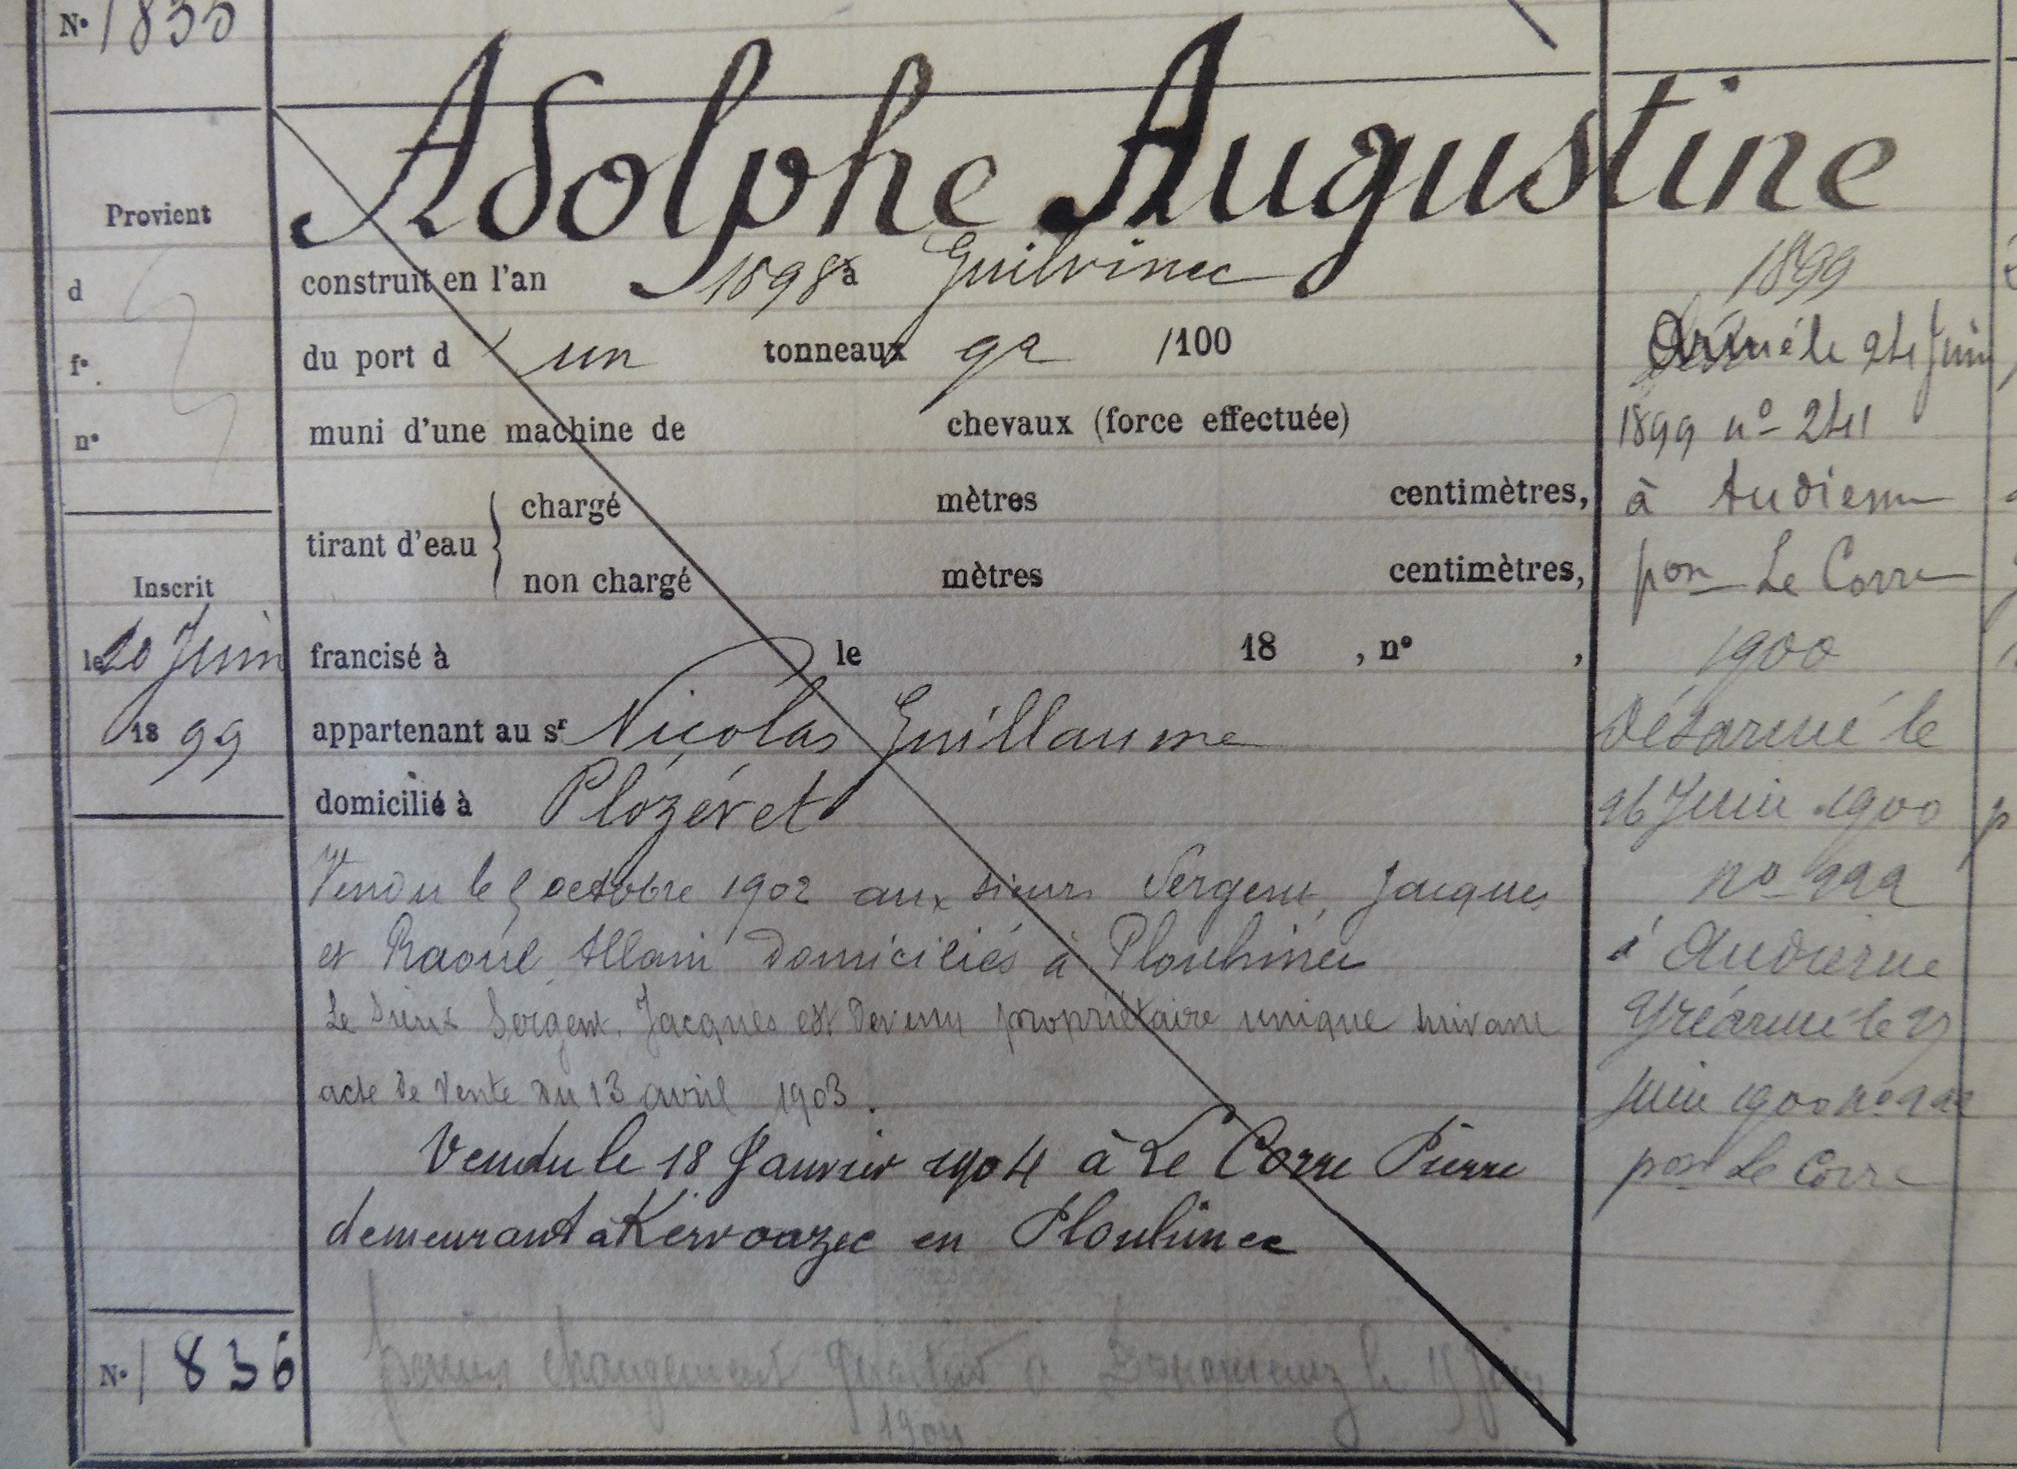 N° 1835
Adolphe Augustine
Provient
d
f°
n°
construit en l'an 1898 à Guilvinec
du port d un tonneaux 92 /100
muni d'une machine de chevaux (force effectuée)
tirant d'eau { chargé mètres centimètres,
non chargé mètres centimètres,
Inscrit
le 20 Juin
1899
francisé à le 18 , n° ,
appartenant au sr Nicolas Guillaume
domicilié à Plozévet
Vendu le 5 octobre 1902 aux sieurs Sergent Jacques
et Raoul Allain domiciliés à Plouhinec
Le sieur Sergent Jacques est devenu propriétaire unique suivant
acte de vente du 13 avril 1903.
Vendu le 18 Janvier 1904 à Le Corre Pierre
demeurant à Kervoazec en Plouhinec
changement quartier à Douarnenez le
1904
N° 1836
1899
Armé le 24 Juin
1899 n° 241
à Audierne
pon Le Corre
1900
Désarmé le
26 Juin 1900
n° 222
à Audierne
Réarmé le 27
Juin 1900 n° 222
pon Le Corre